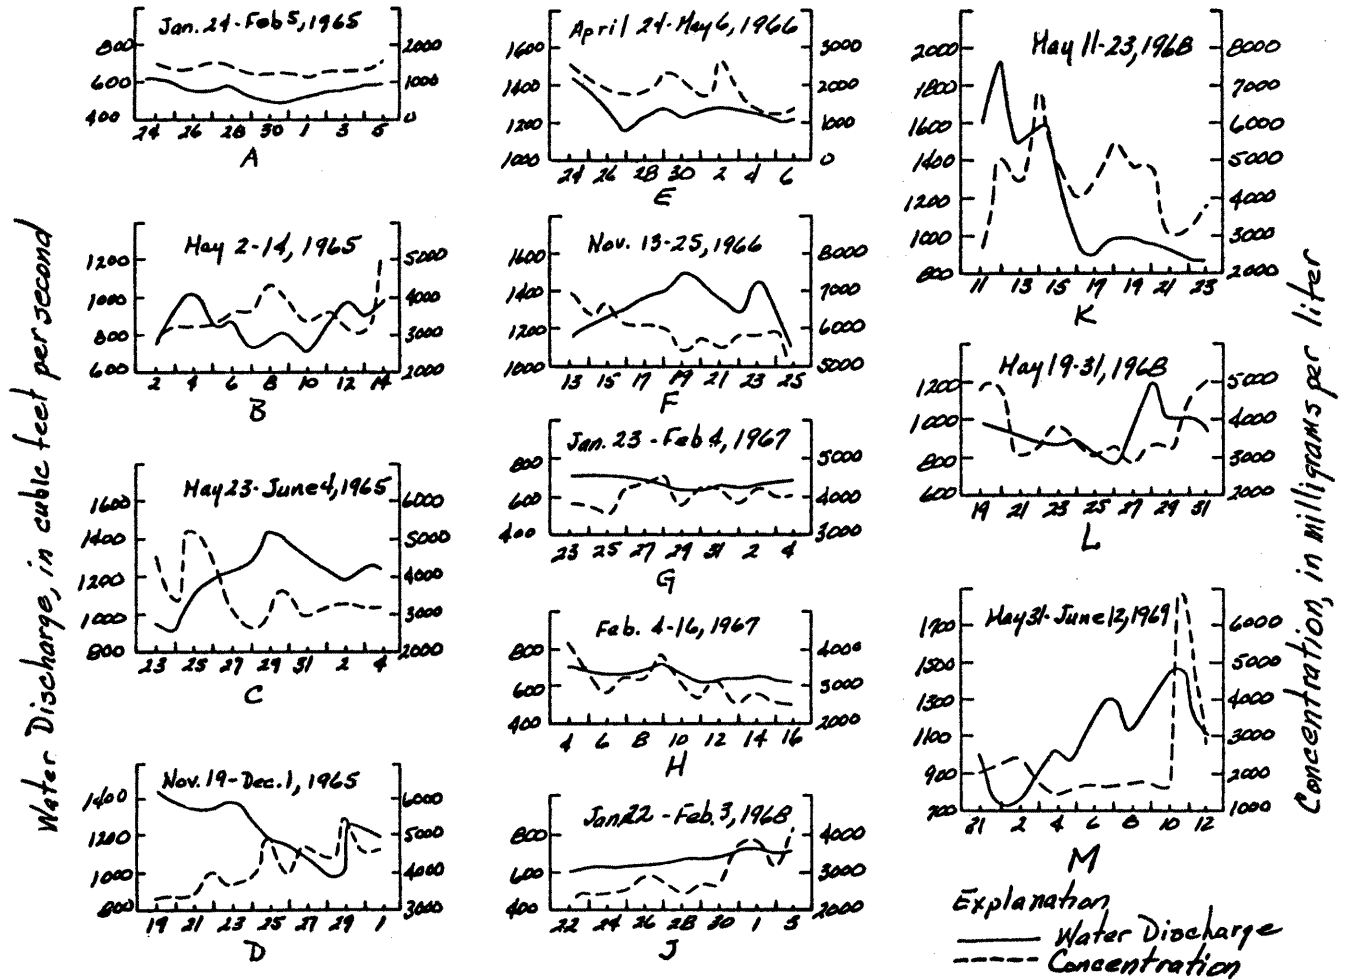 Water Discharge, in cubic feet per second
Concentration, in milligrams per liter
Jan. 24-Feb 5, 1965
800
600
400
2000
1000
0
24 26 28 30 1 3 5
A
May 2-14, 1965
1200
1000
800
600
5000
4000
3000
2 4 6 8 10 12 14
B
May 23-June 4, 1965
1600
1400
1200
1000
800
6000
5000
4000
3000
2000
23 25 27 29 31 2 4
C
Nov. 19-Dec. 1, 1965
1400
1200
1000
800
6000
5000
4000
3000
19 21 23 25 27 29 1
D
April 24-May 6, 1966
1600
1400
1200
1000
3000
2000
1000
0
24 26 28 30 2 4 6
E
Nov. 13-25, 1966
1600
1400
1200
1000
8000
7000
6000
5000
13 15 17 19 21 23 25
F
Jan. 23-Feb 4, 1967
800
600
400
5000
4000
3000
23 25 27 29 31 2 4
G
Feb. 4-16, 1967
800
600
400
4000
3000
2000
4 6 8 10 12 14 16
H
Jan. 22-Feb. 3, 1968
800
600
400
4000
3000
2000
22 24 26 28 30 1 3
J
May 11-23, 1968
2000
1800
1600
1400
1200
1000
800
8000
7000
6000
5000
4000
3000
2000
11 13 15 17 19 21 23
K
May 19-31, 1968
1200
1000
800
600
5000
4000
3000
2000
19 21 23 25 27 29 31
L
May 31-June 12, 1969
1700
1500
1300
1100
900
700
6000
5000
4000
3000
2000
1000
31 2 4 6 8 10 12
M
Explanation
Water Discharge
Concentration